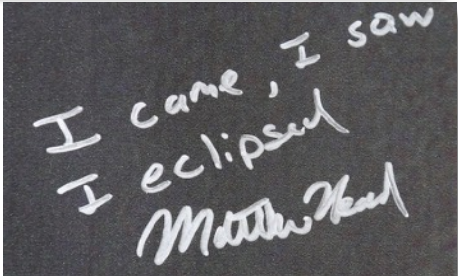 I came, I saw
I eclipsed
Matthew Head